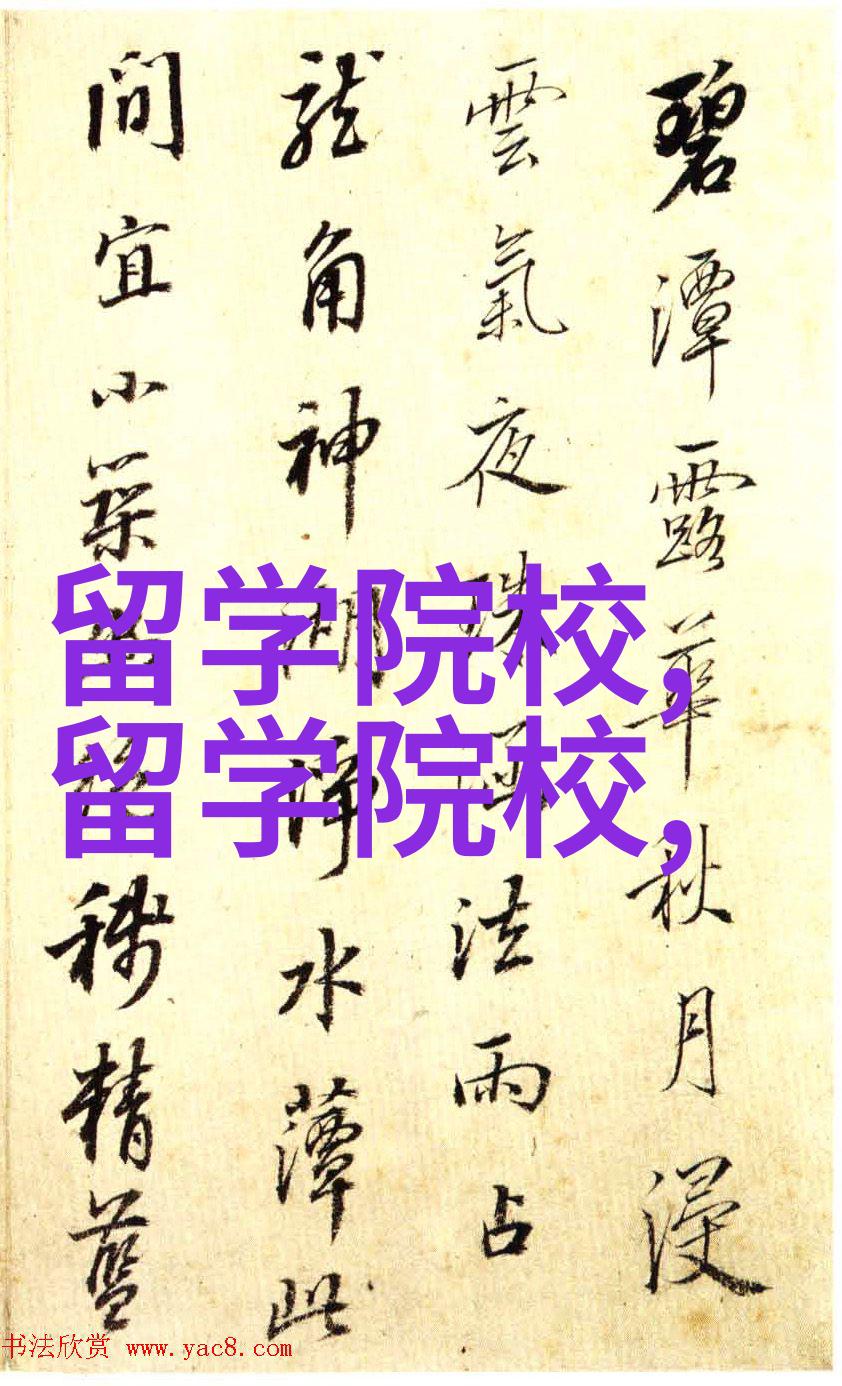 碧潭露華秋月浸
雲氣夜
法雨占
龍角神湖淨水蕈此
間宜小築
移精藍
留学院校,
留学院校,
书法欣赏 www.yac8.com